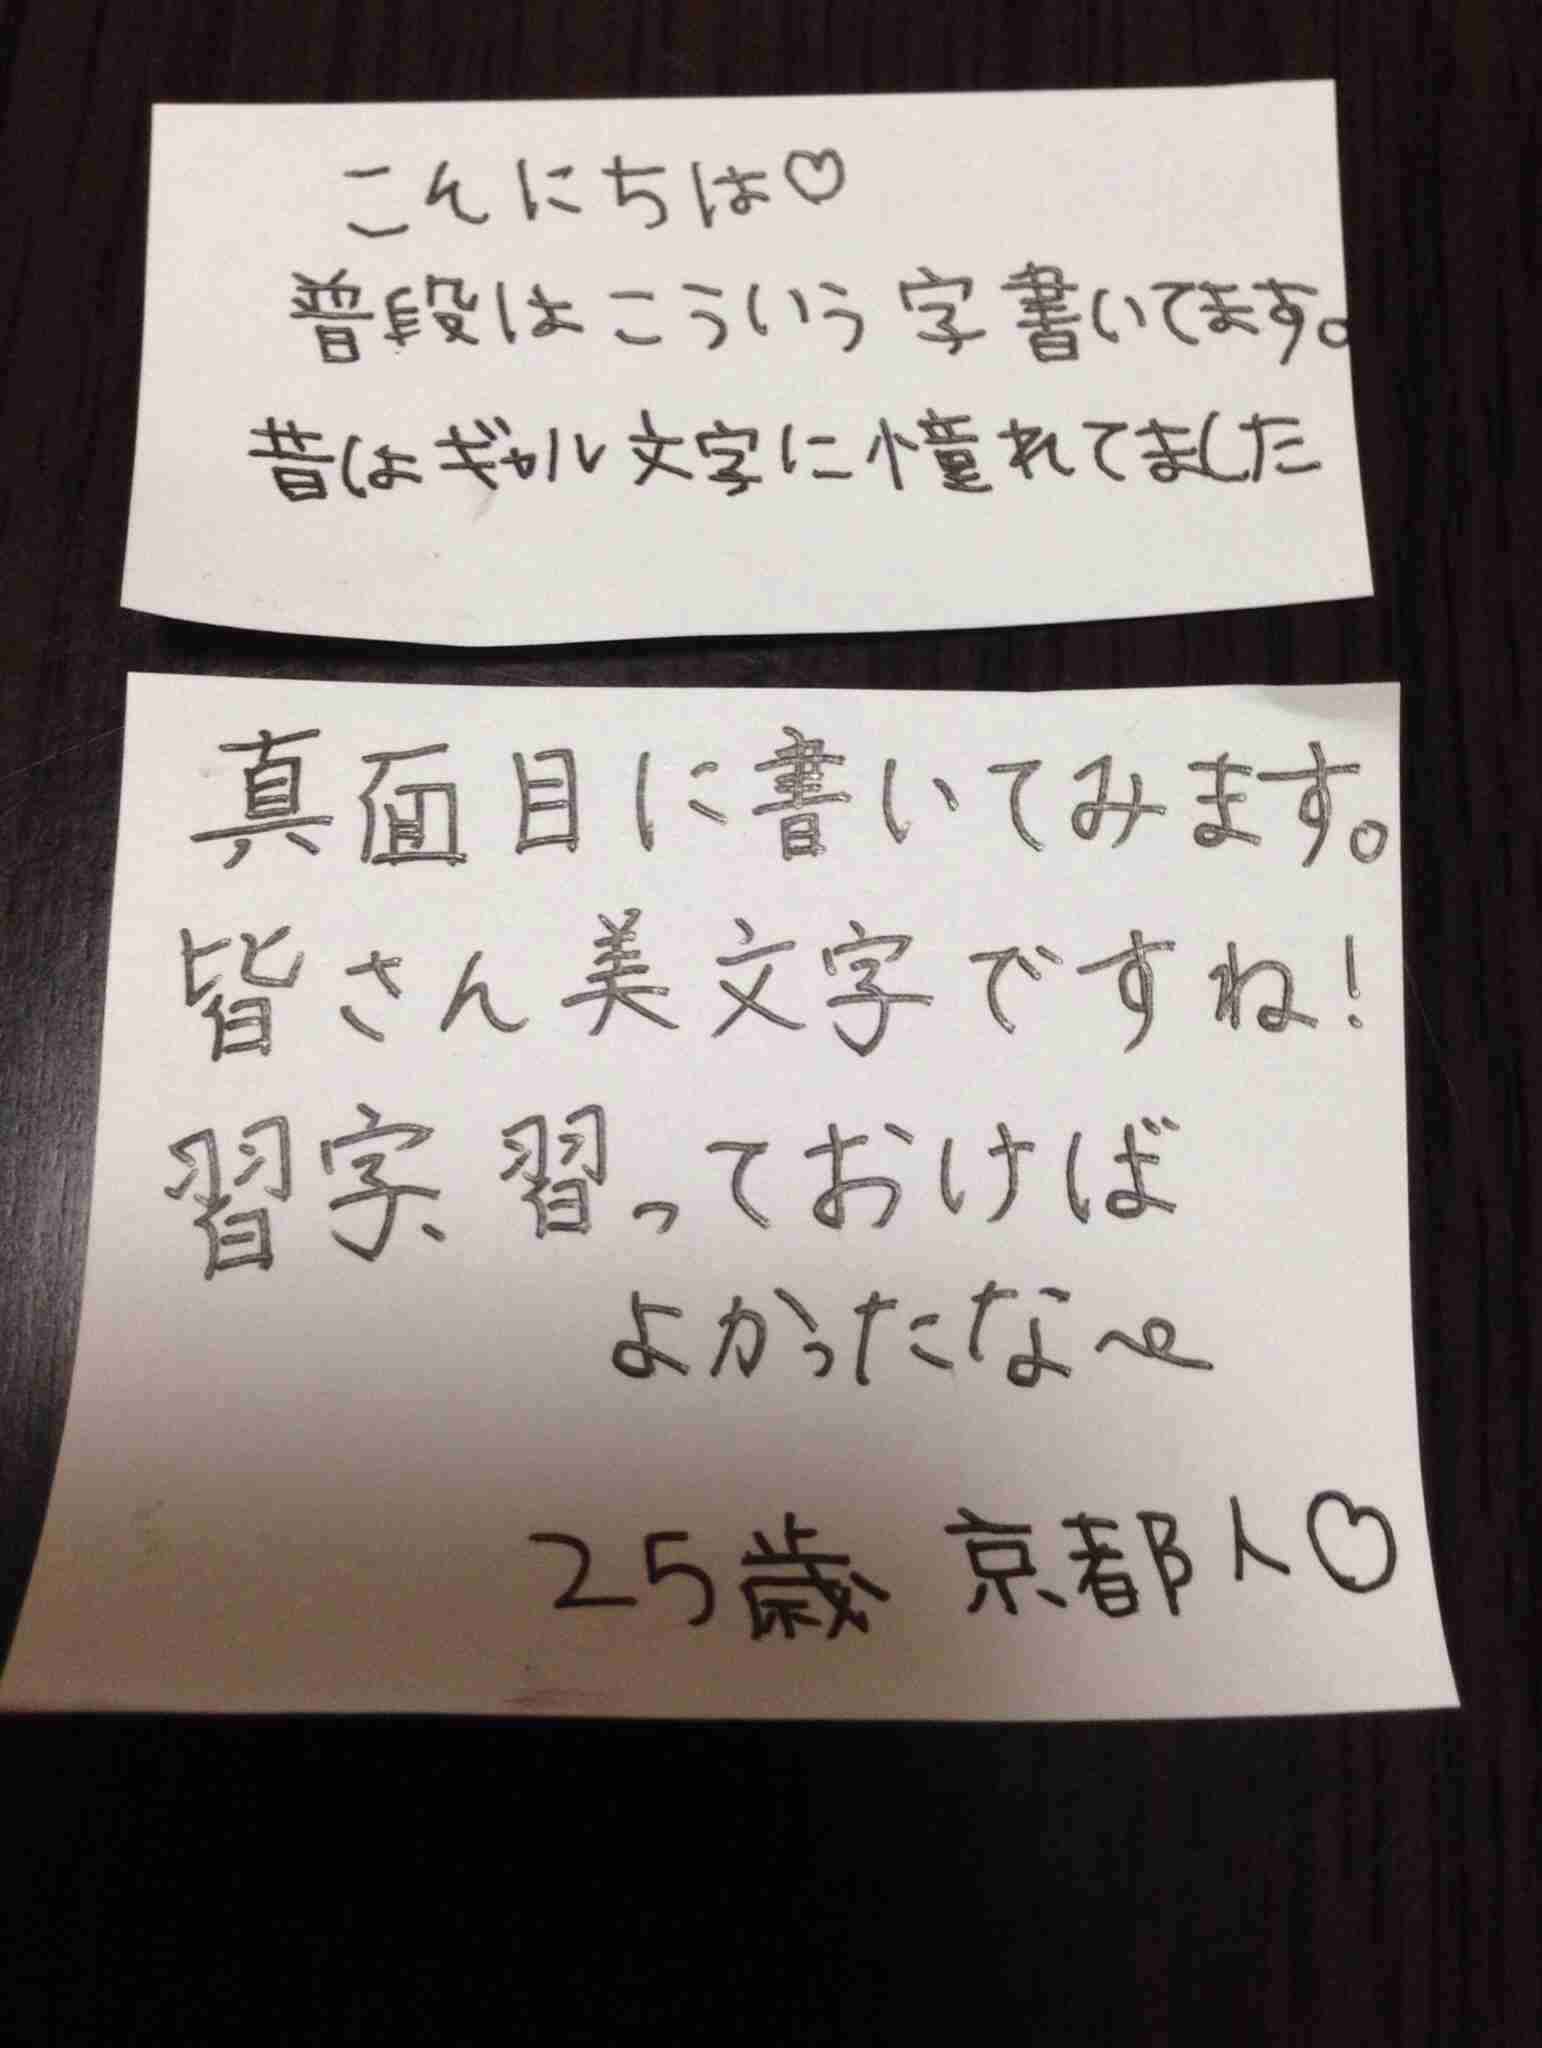 こんにちは♡
普段はこういう字書いてます。
昔はギャル文字に憧れてました
真面目に書いてみます。
皆さん美文字ですね!
習字習っておけば
よかったな〜
25歳 京都人♡